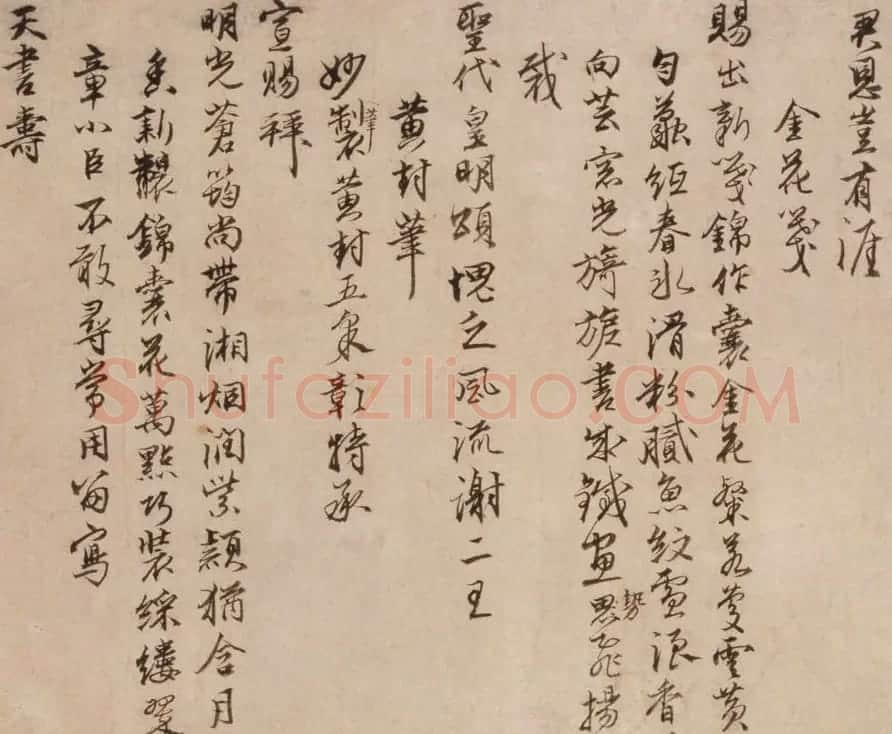 君恩豈有涯
金花箋
賜出新箋錦作囊金花粲若蔓雲黃
勻蘸經春冰滑粉膩魚紋雪浪香
向芸窓光旖旎書成鐵畫思飛揚
勢
裁
聖代皇明頌愧乏風流謝二王
黃封筆
妙製黃封五采彰特承
筆
宣賜拜
明光蒼筠尚帶湘烟潤紫穎猶含月
新製錦囊花萬點巧裝綵縷翠
章小臣不敢尋常用留寫
天書壽
Shufaziliao.COM